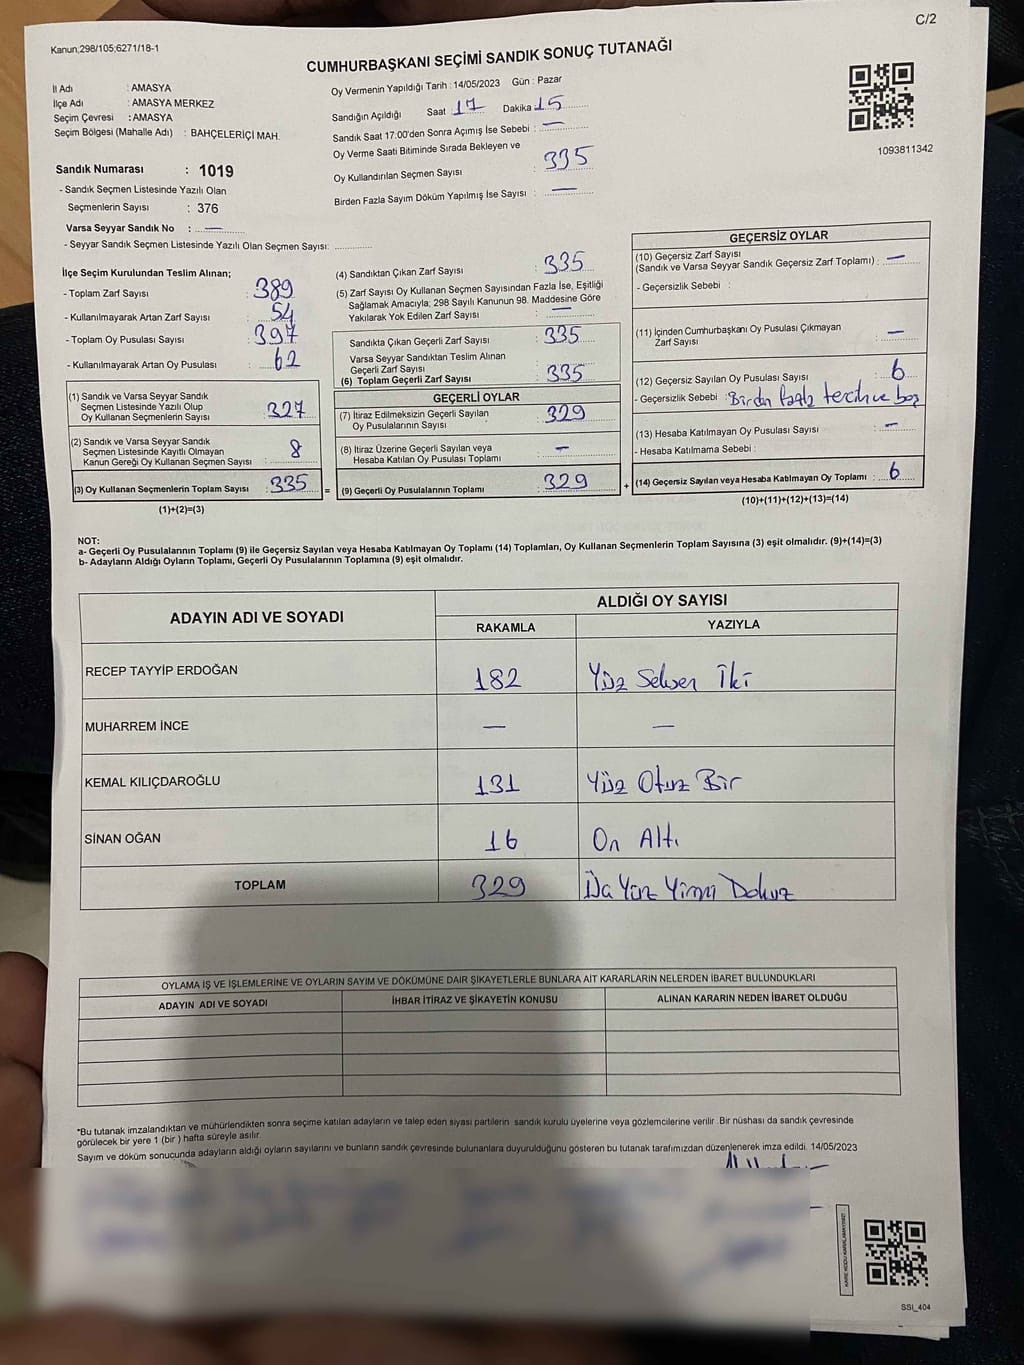 C/2
Kanun;298/105;6271/18-1
CUMHURBAŞKANI SEÇİMİ SANDIK SONUÇ TUTANAĞI
İl Adı : AMASYA
İlçe Adı : AMASYA MERKEZ
Seçim Çevresi : AMASYA
Seçim Bölgesi (Mahalle Adı) : BAHÇELERİÇİ MAH.
Sandık Numarası : 1019
- Sandık Seçmen Listesinde Yazılı Olan
Seçmenlerin Sayısı : 376
Varsa Seyyar Sandık No : —
- Seyyar Sandık Seçmen Listesinde Yazılı Olan Seçmen Sayısı: ..............
Oy Vermenin Yapıldığı Tarih : 14/05/2023 Gün : Pazar
Sandığın Açıldığı Saat : 17 Dakika 15
Sandık Saat 17:00'den Sonra Açımış İse Sebebi : —
Oy Verme Saati Bitiminde Sırada Bekleyen ve
Oy Kullandırılan Seçmen Sayısı : 335
Birden Fazla Sayım Döküm Yapılmış İse Sayısı : —
1093811342
İlçe Seçim Kurulundan Teslim Alınan;
- Toplam Zarf Sayısı : 389
- Kullanılmayarak Artan Zarf Sayısı : 54
- Toplam Oy Pusulası Sayısı : 397
- Kullanılmayarak Artan Oy Pusulası : 62
(1) Sandık ve Varsa Seyyar Sandık
Seçmen Listesinde Yazılı Olup
Oy Kullanan Seçmenlerin Sayısı : 327
(2) Sandık ve Varsa Seyyar Sandık
Seçmen Listesinde Kayıtlı Olmayan
Kanun Gereği Oy Kullanan Seçmen Sayısı : 8
(3) Oy Kullanan Seçmenlerin Toplam Sayısı : 335 =
(1)+(2)=(3)
(4) Sandıktan Çıkan Zarf Sayısı : 335
(5) Zarf Sayısı Oy Kullanan Seçmen Sayısından Fazla İse, Eşitliği
Sağlamak Amacıyla; 298 Sayılı Kanunun 98. Maddesine Göre
Yakılarak Yok Edilen Zarf Sayısı : —
Sandıkta Çıkan Geçerli Zarf Sayısı : 335
Varsa Seyyar Sandıktan Teslim Alınan
Geçerli Zarf Sayısı
(6) Toplam Geçerli Zarf Sayısı : 335
GEÇERLİ OYLAR
(7) İtiraz Edilmeksizin Geçerli Sayılan
Oy Pusulalarının Sayısı : 329
(8) İtiraz Üzerine Geçerli Sayılan veya
Hesaba Katılan Oy Pusulası Toplamı : —
(9) Geçerli Oy Pusulalarının Toplamı : 329 +
GEÇERSİZ OYLAR
(10) Geçersiz Zarf Sayısı
(Sandık ve Varsa Seyyar Sandık Geçersiz Zarf Toplamı) : —
- Geçersizlik Sebebi :
(11) İçinden Cumhurbaşkanı Oy Pusulası Çıkmayan
Zarf Sayısı : —
(12) Geçersiz Sayılan Oy Pusulası Sayısı : 6
- Geçersizlik Sebebi : Birden fazla tercih ve boş
(13) Hesaba Katılmayan Oy Pusulası Sayısı : —
- Hesaba Katılmama Sebebi :
(14) Geçersiz Sayılan veya Hesaba Katılmayan Oy Toplamı : 6
(10)+(11)+(12)+(13)=(14)
NOT:
a- Geçerli Oy Pusulalarının Toplamı (9) ile Geçersiz Sayılan veya Hesaba Katılmayan Oy Toplamı (14) Toplamları, Oy Kullanan Seçmenlerin Toplam Sayısına (3) eşit olmalıdır. (9)+(14)=(3)
b- Adayların Aldığı Oyların Toplamı, Geçerli Oy Pusulalarının Toplamına (9) eşit olmalıdır.
ADAYIN ADI VE SOYADI ALDIĞI OY SAYISI
RAKAMLA YAZIYLA
RECEP TAYYİP ERDOĞAN 182 Yüz Seksen İki
MUHARREM İNCE — —
KEMAL KILIÇDAROĞLU 131 Yüz Otuz Bir
SİNAN OĞAN 16 On Altı
TOPLAM 329 Yüz Yirmi Dokuz
OYLAMA İŞ VE İŞLEMLERİNE VE OYLARIN SAYIM VE DÖKÜMÜNE DAİR ŞİKAYETLERLE BUNLARA AİT KARARLARIN NELERDEN İBARET BULUNDUKLARI
ADAYIN ADI VE SOYADI İHBAR İTİRAZ VE ŞİKAYETİN KONUSU ALINAN KARARIN NEDEN İBARET OLDUĞU
*Bu tutanak imzalandıktan ve mühürlendikten sonra seçime katılan adayların ve talep eden siyasi partilerin sandık kurulu üyelerine veya gözlemcilerine verilir .Bir nüshası da sandık çevresinde
görülecek bir yere 1 (bir ) hafta süreyle asılır.
Sayım ve döküm sonucunda adayların aldığı oyların sayılarını ve bunların sandık çevresinde bulunanlara duyurulduğunu gösteren bu tutanak tarafımızdan düzenlenerek imza edildi. 14/05/2023
SSI_404